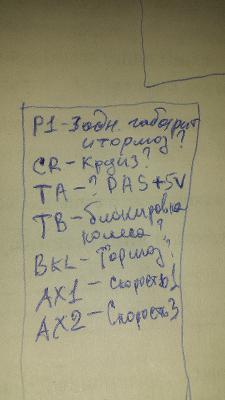 P1-Задн. габарит
и тормоз?
CR-Круиз?
TA-? PAS+5V
TB-блокировка
колеса?
BKL-Тормоз?
AX1-скорость1
AX2-Скорость3